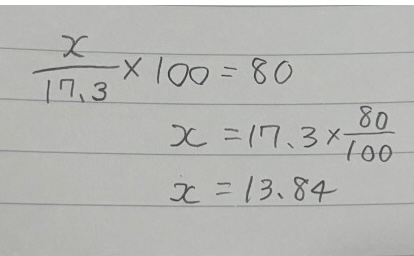 x/17.3 × 100 = 80
x = 17.3 × 80/100
x = 13.84